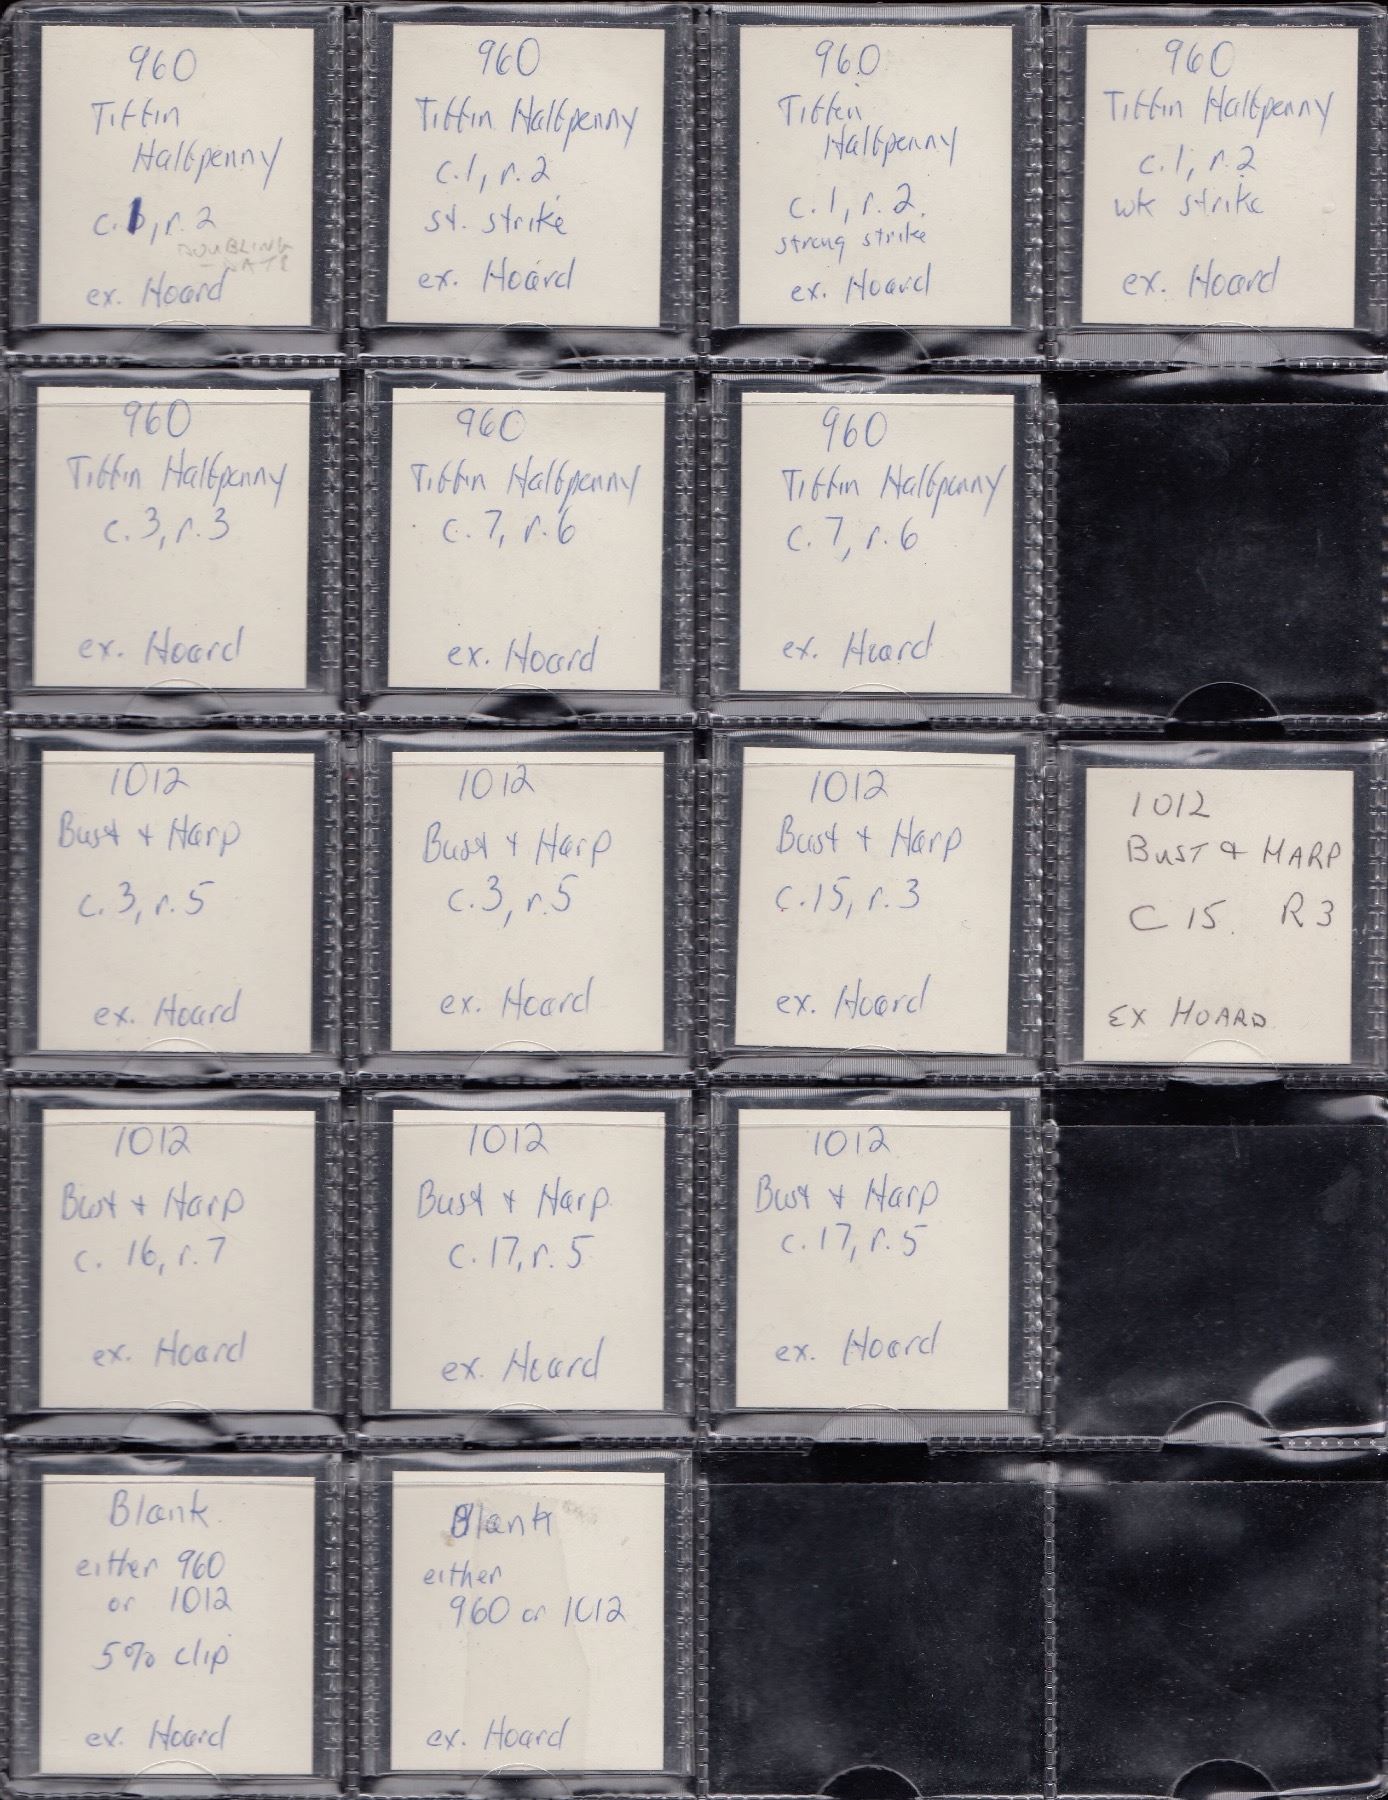 960
Tiffin
Halfpenny
c.1, r.2
DOUBLING
ex. Hoard
960
Tiffin Halfpenny
c.1, r.2
st. strike
ex. Hoard
960
Tiffin
Halfpenny
c.1, r.2
strong strike
ex. Hoard
960
Tiffin Halfpenny
c.1, r.2
wk strike
ex. Hoard
960
Tiffin Halfpenny
c.3, r.3
ex. Hoard
960
Tiffin Halfpenny
c.7, r.6
ex. Hoard
960
Tiffin Halfpenny
c.7, r.6
ex. Hoard
1012
Bust + Harp
c.3, r.5
ex. Hoard
1012
Bust + Harp
c.3, r.5
ex. Hoard
1012
Bust + Harp
c.15, r.3
ex. Hoard
1012
BUST & HARP
C 15. R3
EX HOARD
1012
Bust + Harp
c. 16, r.7
ex. Hoard
1012
Bust + Harp
c.17, r.5
ex. Hoard
1012
Bust + Harp
c.17, r.5
ex. Hoard
Blank
either 960
or 1012
5% clip
ex. Hoard
Blank
either
960 or 1012
ex. Hoard